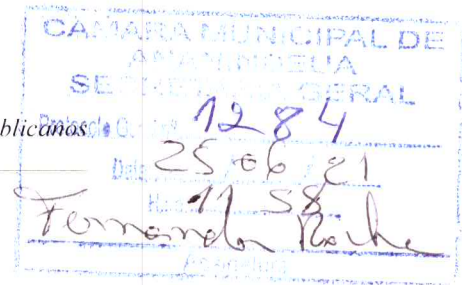 CÂMARA MUNICIPAL DE
ANANINDEUA
SECRETARIA GERAL
blicanos
Protocolo 1284
Data 25 06 21
11 58
Fernanda Rocha
Assinatura